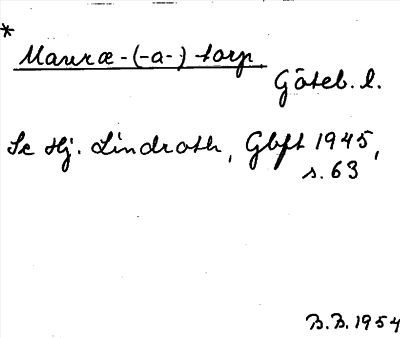 *
Mauræ-(-a-) torp
Göteb. l.
Se Hj. Lindroth, Gbft 1945,
s. 63
B.B. 1954